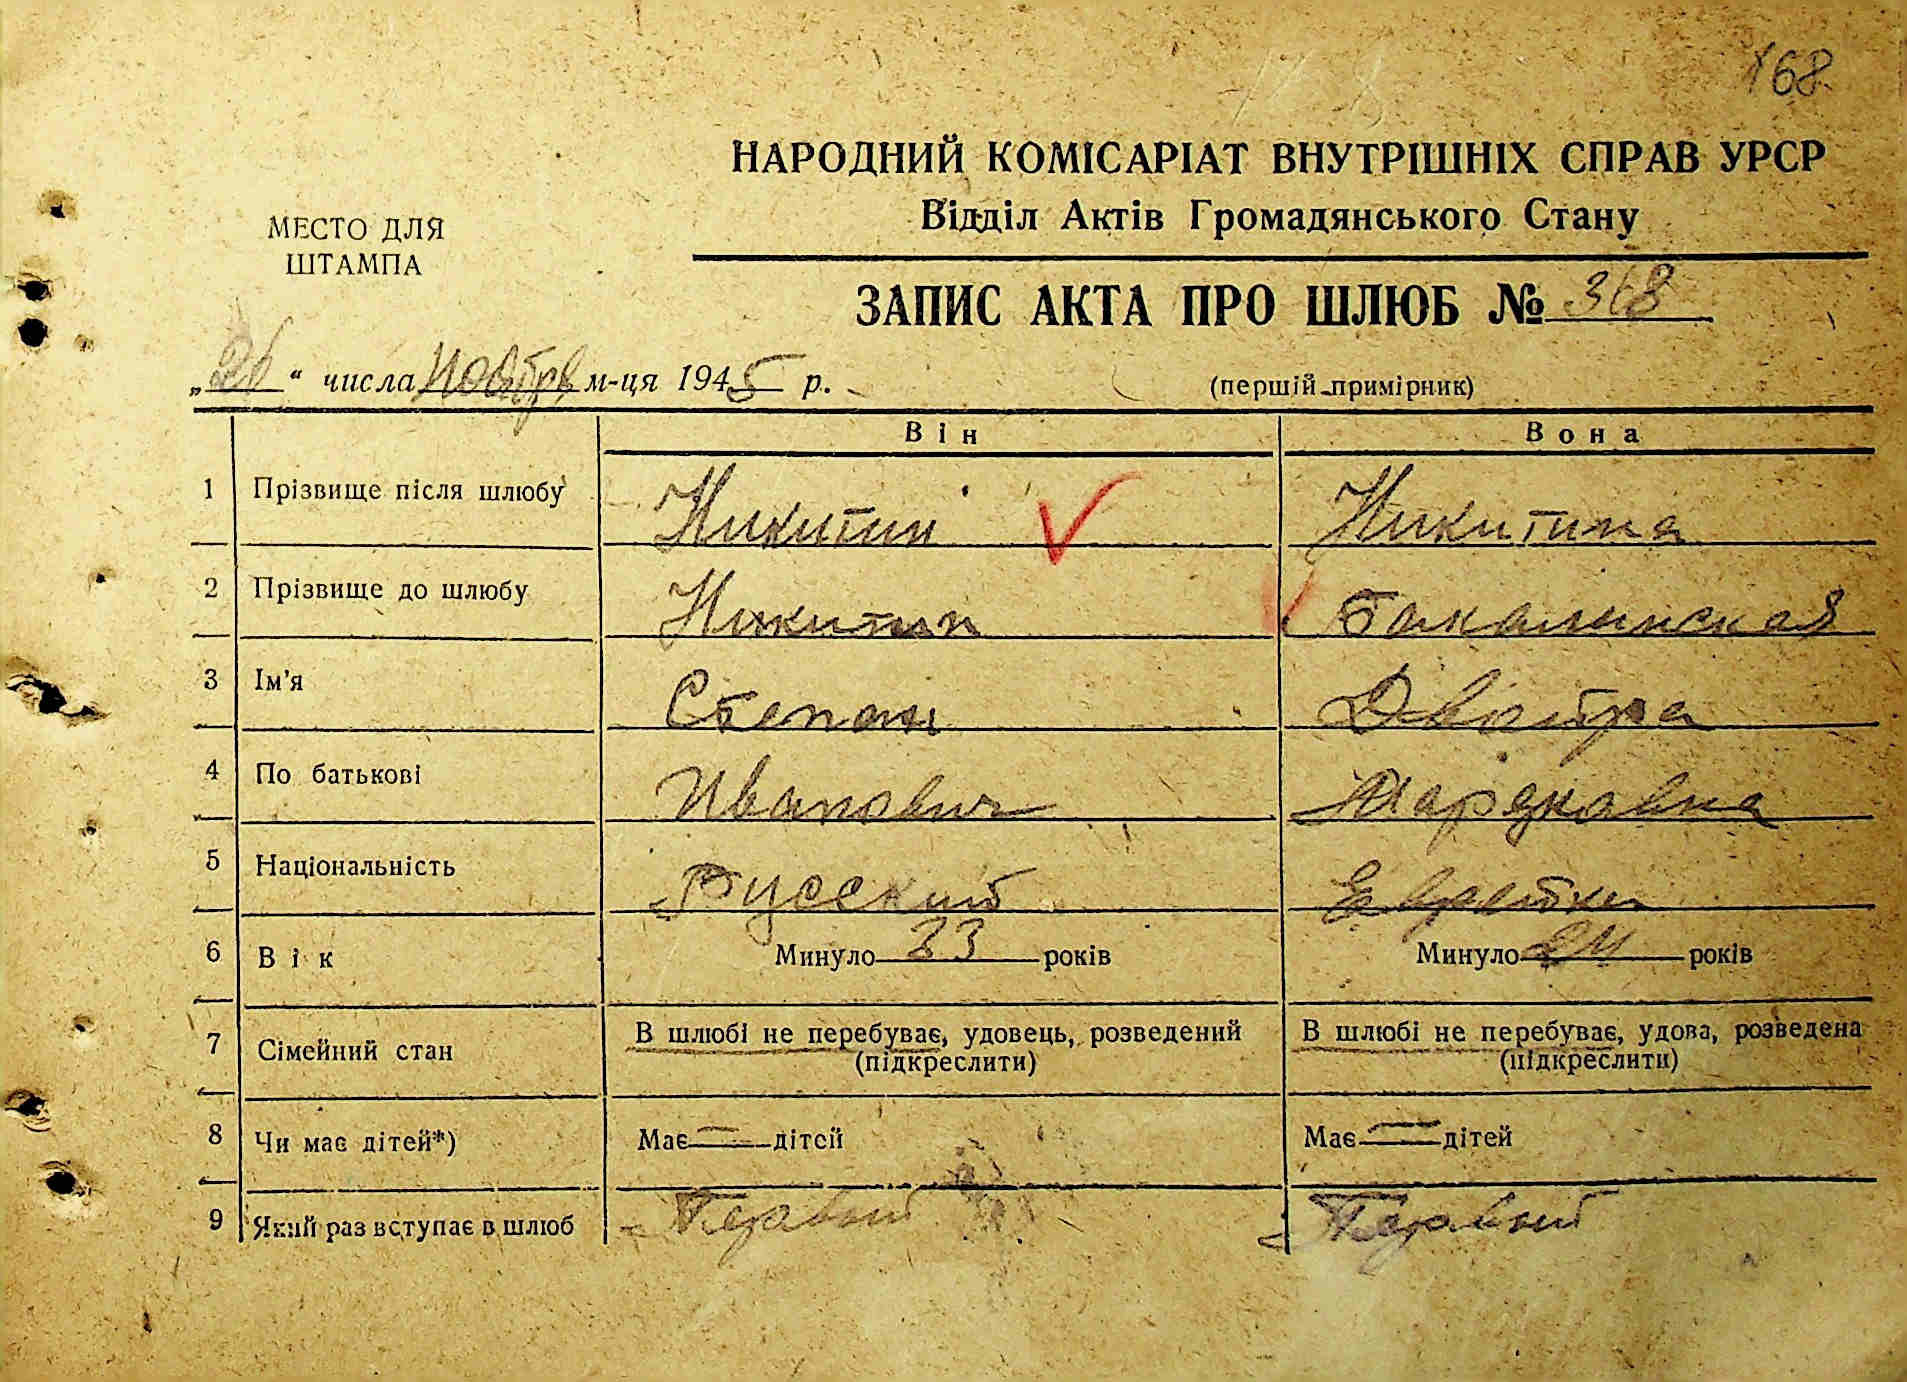 168
НАРОДНИЙ КОМІСАРІАТ ВНУТРІШНІХ СПРАВ УРСР
Відділ Актів Громадянського Стану
МЕСТО ДЛЯ
ШТАМПА
ЗАПИС АКТА ПРО ШЛЮБ № 368
„26“ числа Ноября м-ця 1945 р.
(першій примірник)
Він Вона
1 Прізвище після шлюбу Никитин Никитина
2 Прізвище до шлюбу Никитин Бакалинская
3 Ім'я Степан
4 По батькові Иванович
5 Національність Русский Еврейка
6 Вік Минуло 33 років Минуло 24 років
7 Сімейний стан В шлюбі не перебуває, удовець, розведений В шлюбі не перебуває, удова, розведена
(підкреслити) (підкреслити)
8 Чи має дітей*) Має — дітей Має — дітей
9 Який раз вступає в шлюб Первый Первый